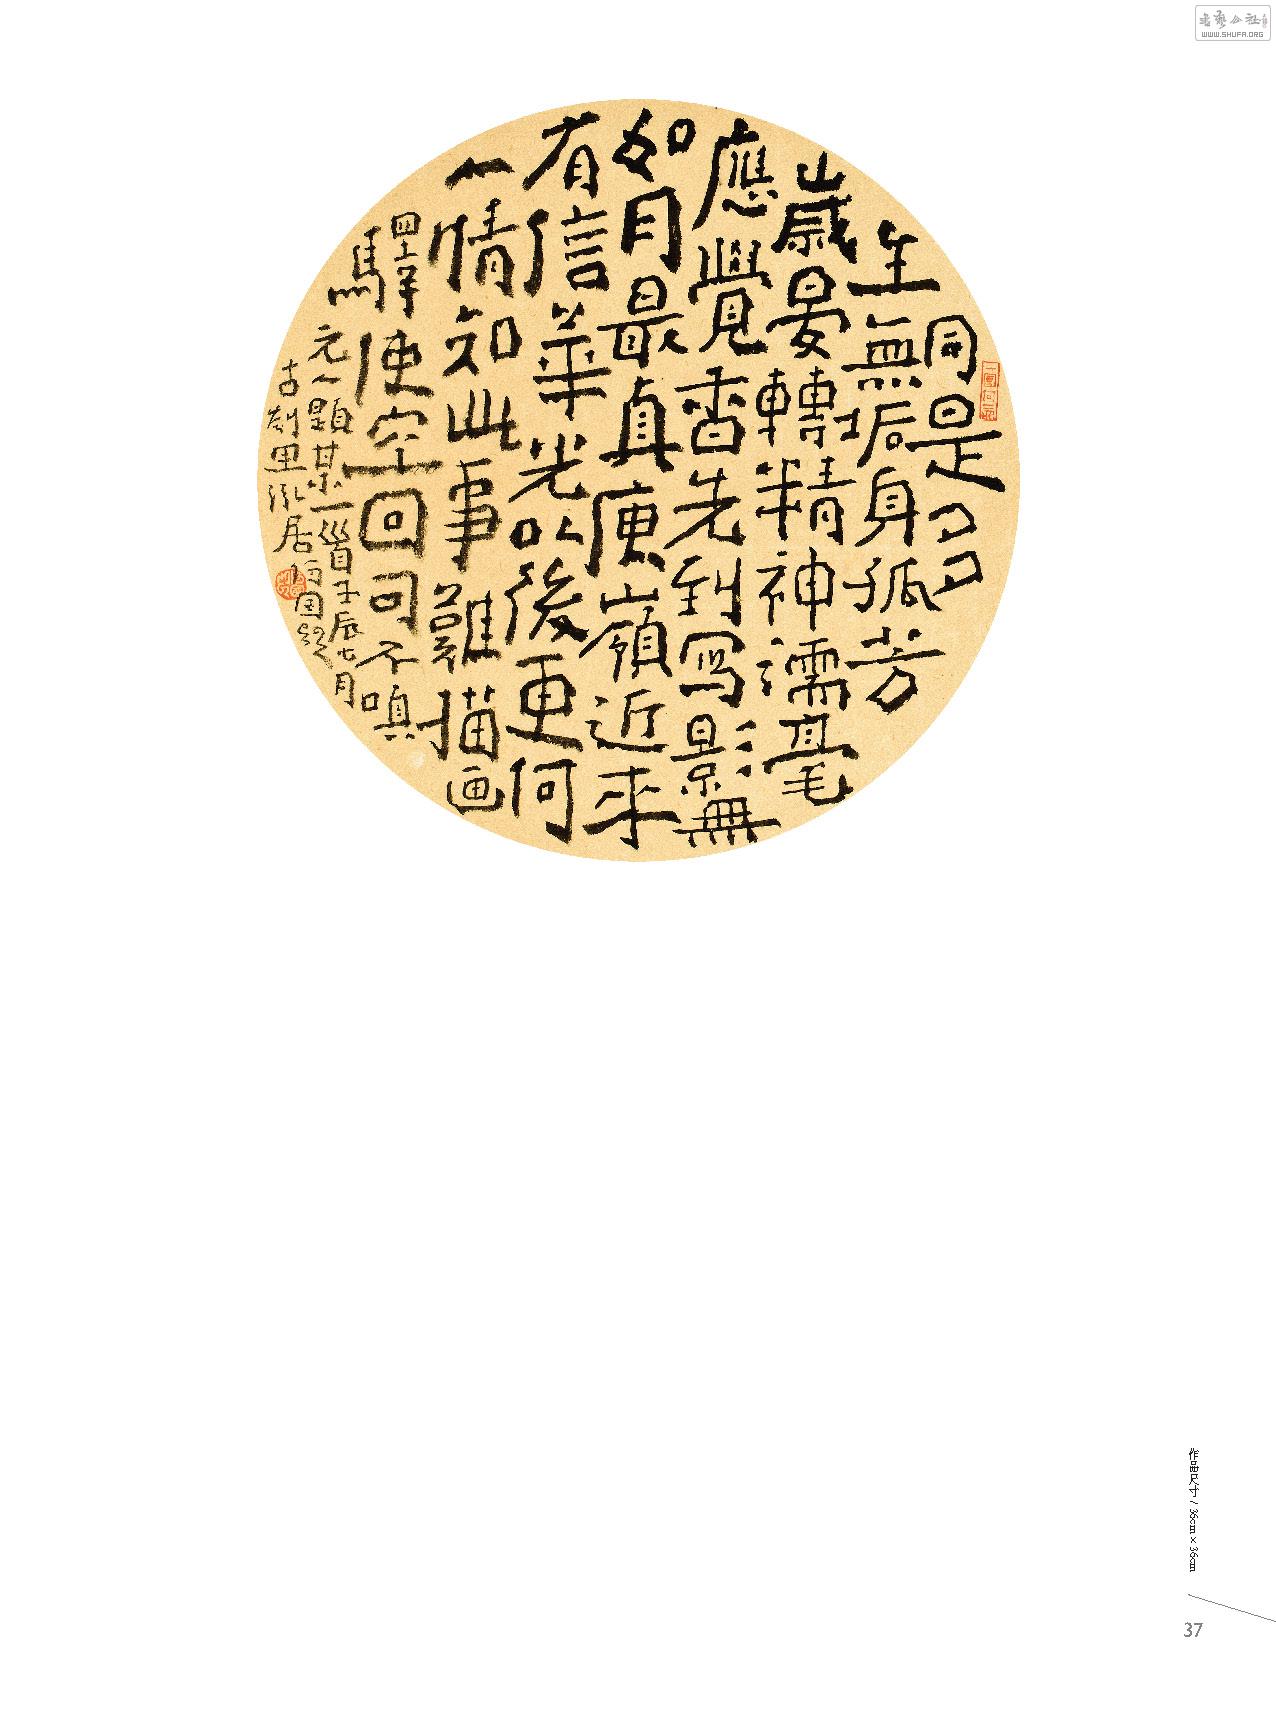 同是多
生無垢身孤芳
歲晏轉精神濡毫
應覺香先到寫影無
如月最真庾嶺近來
有信華光以後更何
人情知此事難描画
驛使空回可不嗔
元人題某一首壬辰七月
古剡里
書藝公社
WWW.SHUFA.ORG
作品尺寸 / 36cm × 36cm
37